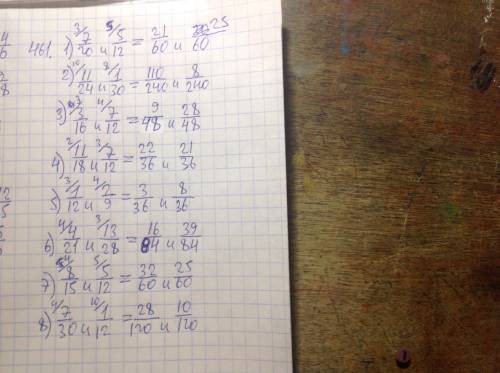 461. 1) ³⁄7/20 и ⁵⁄5/12 = 21/60 и 25/60
2) ¹⁰⁄11/24 и ⁸⁄1/30 = 110/240 и 8/240
3) ³⁄3/16 и ⁴⁄7/12 = 9/48 и 28/48
4) ²⁄11/18 и ³⁄7/12 = 22/36 и 21/36
5) ³⁄1/12 и ⁴⁄2/9 = 3/36 и 8/36
6) ⁴⁄4/21 и ³⁄13/28 = 16/84 и 39/84
7) ⁴⁄8/15 и ⁵⁄5/12 = 32/60 и 25/60
8) ⁴⁄7/30 и ¹⁰⁄1/12 = 28/120 и 10/120